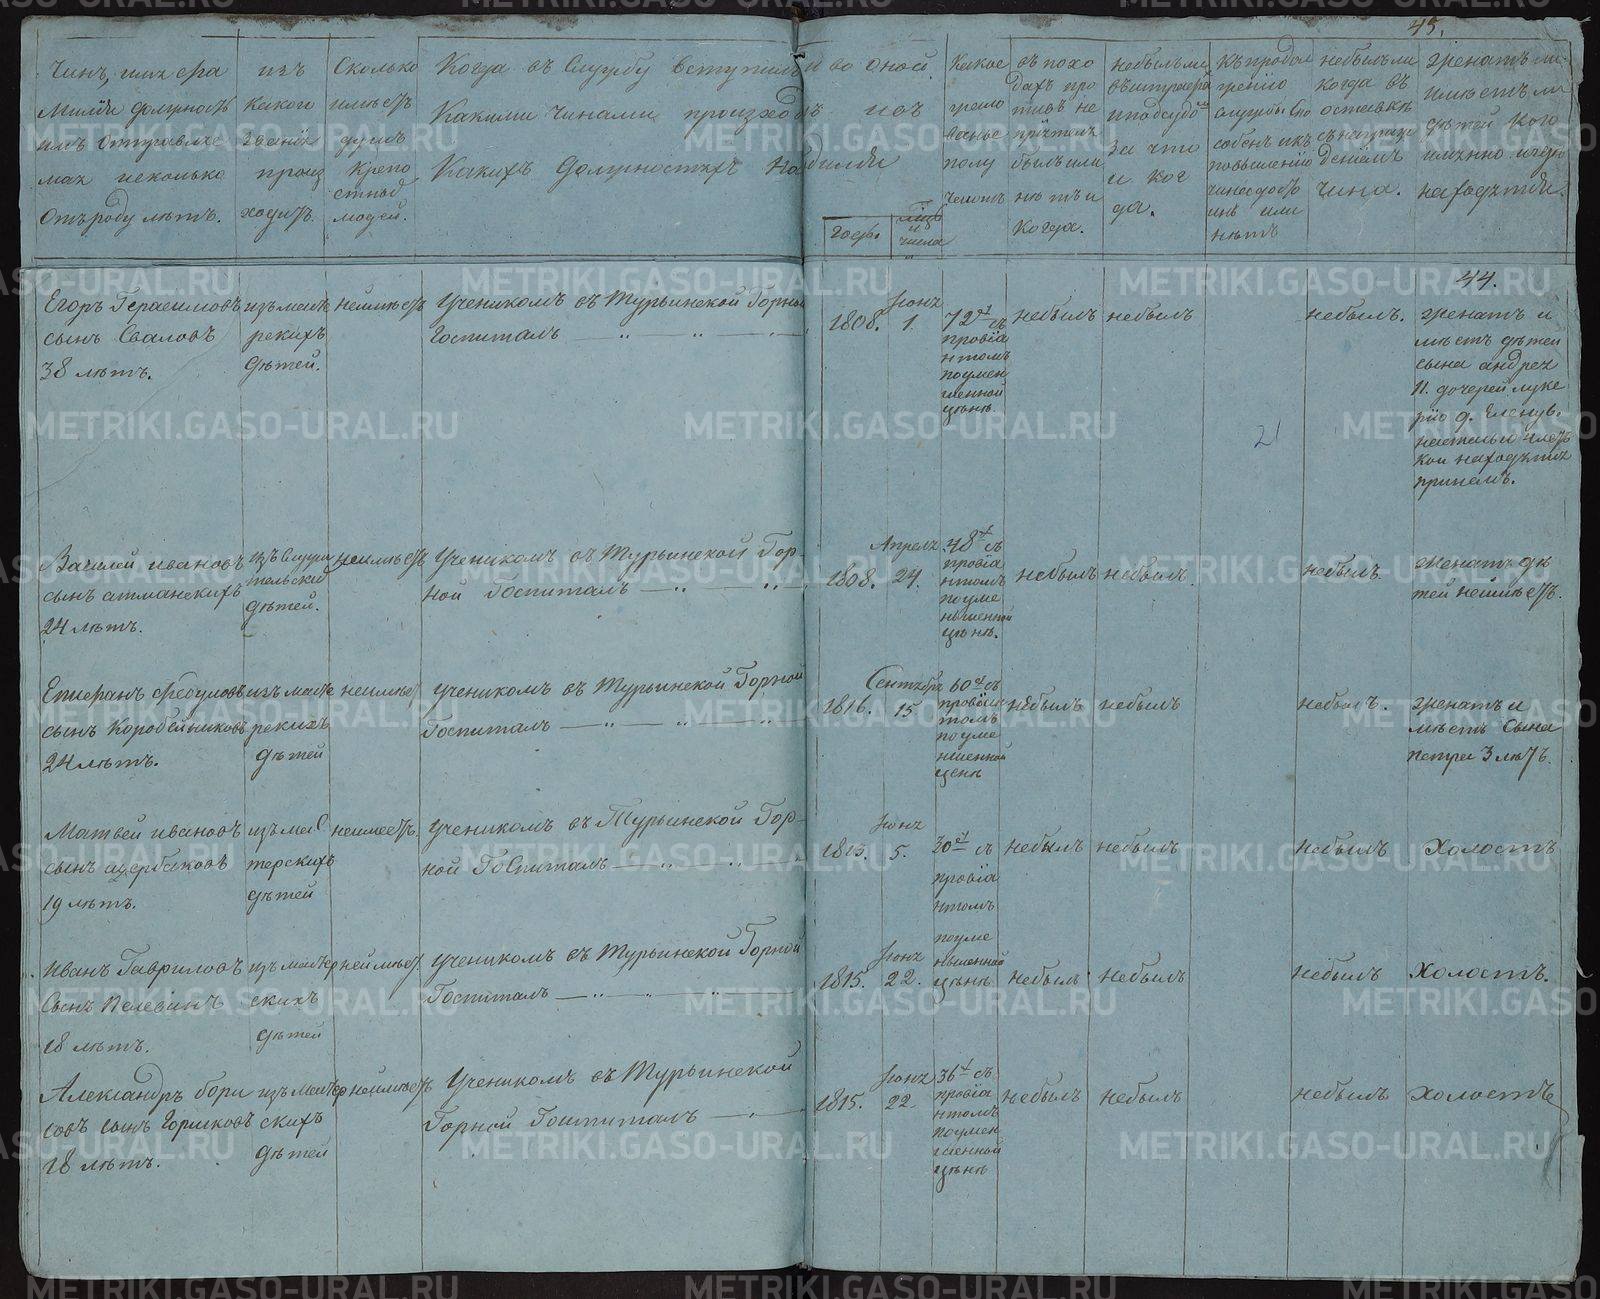 45.
Чинъ, имя фа
милія должность
имъ отправляе
мая и сколько
отъ роду лѣтъ.
изъ
какого
званія
проис
ходитъ.
Сколько
имѣетъ
душъ
крепо
стныхъ
людей.
Когда въ Службу вступилъ и во оной
Какими Чинами произходилъ и въ
Какихъ должностяхъ находился
годы.
числа
Какое
жало
ванье
полу
чаетъ
въ похо
дахъ про
тивъ не
пріятеля
былъ или
нѣтъ и
когда.
небылъ ли
въ штрафахъ
и подъ судо
за что
и ког
да.
Къ продол
женію
службы спо
собенъ и къ
повышенію
чина достоЪ
инъ или
нѣтъ
небылъ ли
когда въ
отставкѣ
съ награж
деніемъ
чина.
женатъ ли
имѣетъ ли
дѣтей кого
именно и где
находятся.
44.
Егоръ Герасимовъ
сынъ Сваловъ
38 лѣтъ.
изъ масте
рскихъ
дѣтей.
неимѣетъ
Ученикомъ въ Турьинской Горной
Госпиталѣ
1808.
Іюня
1.
72 съ
провіа
нтомъ
по умен
шенной
цѣнѣ
небылъ
небылъ
небылъ.
женатъ и
мѣетъ дѣтей
сына андрея
11. дочерей луке
рію 9. Елену 6.
кои находятся
при немъ.
21
Василей ивановъ
сынъ атманскихъ
24 лѣтъ.
изъ служи
тельский
дѣтей.
неимѣетъ
Ученикомъ въ Турьинской Гор-
ной Госпиталѣ
1808.
Апреля
24.
48 съ
провіа
нтомъ
по уме
ншенной
цѣнѣ.
небылъ
небылъ.
небылъ.
женатъ дѣ
тей неимѣетъ.
Федуловъ
сынъ Коробейниковъ
24 лѣтъ.
изъ масте
рскихъ
дѣтей
неимѣе
Ученикомъ въ Турьинской Горной
Госпиталѣ
1816.
Сентября
15
60 съ
провіан
томъ
по уме
ншенной
ценѣ
небылъ
небылъ
небылъ.
женатъ и
мѣетъ сына
петра 3 лѣтъ.
Матвей ивановъ
сынъ щербаковъ
19 лѣтъ.
изъ мас
терскихъ
дѣтей
неимеетъ.
Ученикомъ въ Турьинской Гор-
ной Госпиталѣ
1813.
Іюня
5.
30 съ
провіа
нтомъ
по уме
ншенной
цѣнѣ
небылъ
небылъ
небылъ
Холостъ
Иванъ Гавриловъ
Сынъ Пелевинъ
18 лѣтъ.
изъ мастер
скихъ
дѣтей
неимѣе
Ученикомъ въ Турьинской Горной
Госпиталѣ
1815.
Іюня
22.
небылъ
небылъ
небылъ
Холостъ.
Александръ бори
совъ сынъ Горшковъ
18 лѣтъ.
изъ мастер
скихъ
дѣтей
неимѣетъ
Ученикомъ въ Турьинской
Горной Госпиталѣ
1815.
Іюня
22
36 съ
провіа
нтомъ
по умен
шенной
цѣнѣ
небылъ
небылъ
небылъ
Холостъ
METRIKI.GASO-URAL.RU